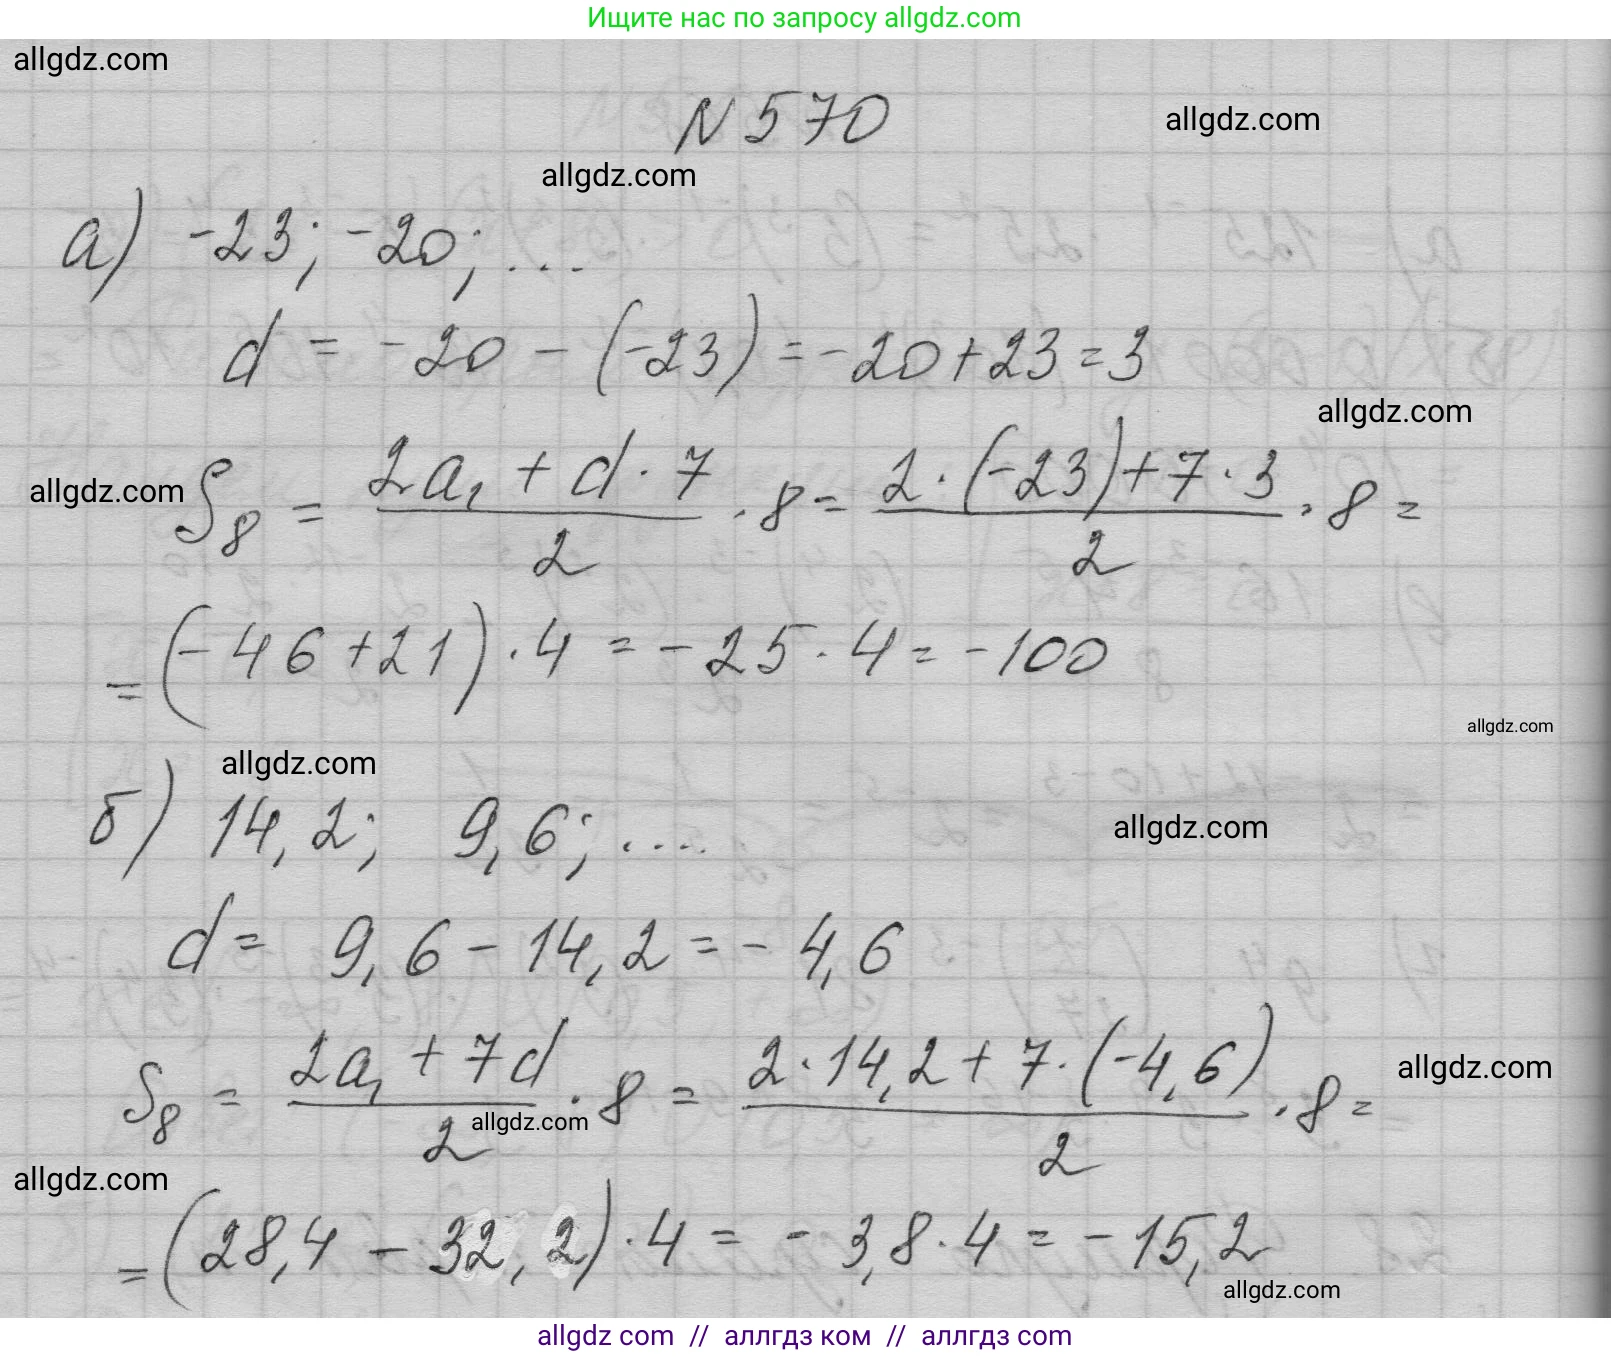 Ищите нас по запросу allgdz.com
allgdz.com
N 570
allgdz.com
allgdz.com
а) -23; -20; ...
d = -20 - (-23) = -20 + 23 = 3
allgdz.com
allgdz.com
S₈ = (2a₁ + d · 7)/2 · 8 = (2 · (-23) + 7 · 3)/2 · 8 =
= (-46 + 21) · 4 = -25 · 4 = -100
allgdz.com
allgdz.com
б) 14,2; 9,6; ....
allgdz.com
d = 9,6 - 14,2 = -4,6
S₈ = (2a₁ + 7d)/2 · 8 = (2 · 14,2 + 7 · (-4,6))/2 · 8 =
allgdz.com
allgdz.com
allgdz.com
= (28,4 - 32,2) · 4 = -3,8 · 4 = -15,2
allgdz.com
allgdz com // аллгдз ком // аллгдз com